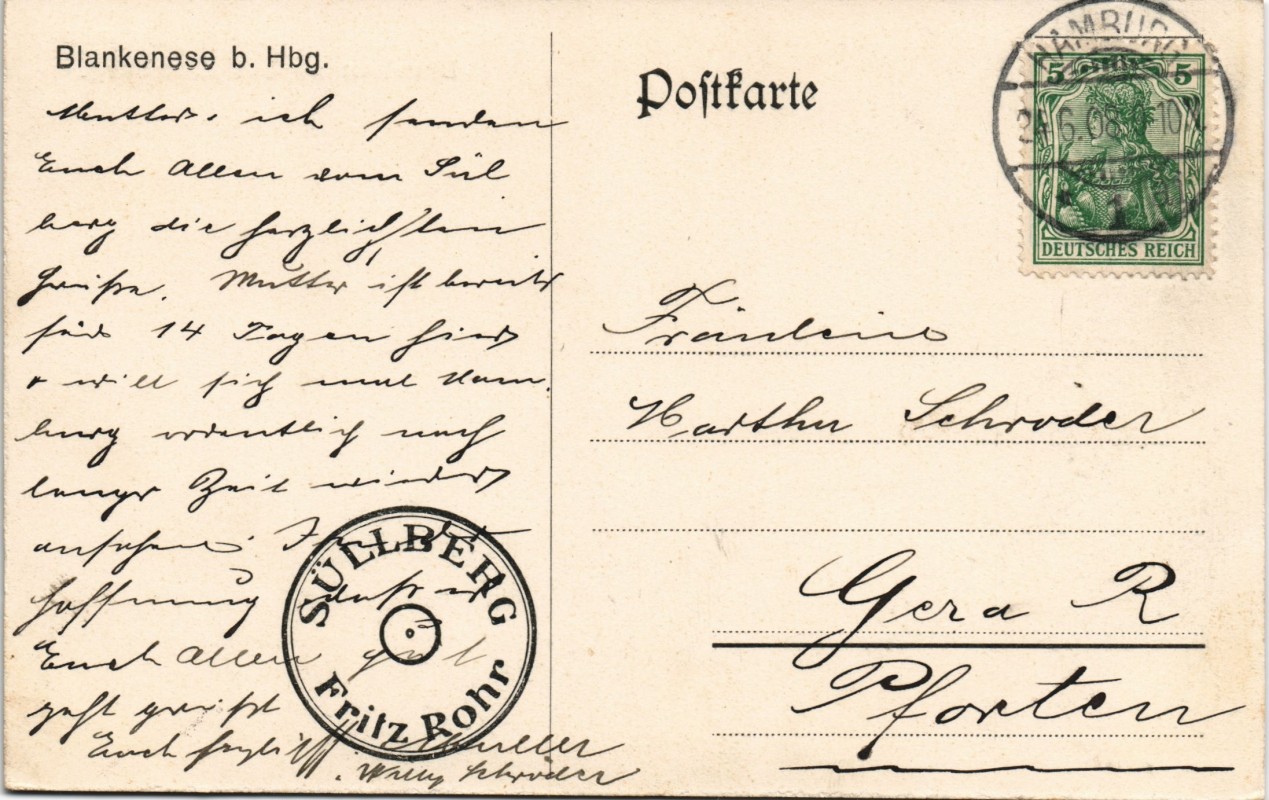 Blankenese b. Hbg.
Mutter u. ich senden
Euch Allen vom Sül
berg die herzlichsten
Grüße. Mutter ist bereits
seit 14 Tagen hier
u will sich mal Ham-
burg ordentlich nach
langer Zeit wieder
ansehen. In der
Hoffnung daß es
Euch Allen gut
geht grüßt
Euch herzlichst Mutter
u. Willy Schröder
SÜLLBERG
Fritz Rohr
Postkarte
HAMBURG
24.6.08. 10
* 1
5 5
DEUTSCHES REICH
Fräulein
Martha Schröder
Gera R
Pforten